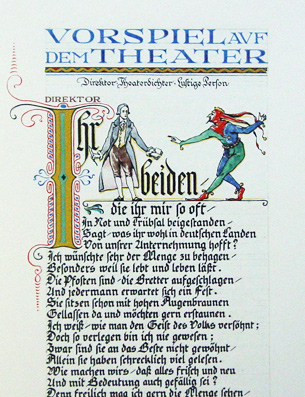 VORSPIEL AUF
DEM THEATER
Direktor · Theaterdichter · Lustige Person
DIREKTOR
Ihr
beiden
die ihr mir so oft/
In Not und Trübsal beigestanden/
Sagt/was ihr wohl in deutschen Landen
Von unsrer Unternehmung hofft?
Ich wünschte sehr der Menge zu behagen/
Besonders weil sie lebt und leben läßt.
Die Pfosten sind/die Bretter aufgeschlagen/
Und jedermann erwartet sich ein Fest.
Sie sitzen schon mit hohen Augenbraunen
Gelassen da und möchten gern erstaunen.
Ich weiß/wie man den Geist des Volks versöhnt;
Doch so verlegen bin ich nie gewesen;
Zwar sind sie an das Beste nicht gewöhnt/
Allein sie haben schrecklich viel gelesen.
Wie machen wirs/daß alles frisch und neu
Und mit Bedeutung auch gefällig sei?
Denn freilich mag ich gern die Menge sehen/